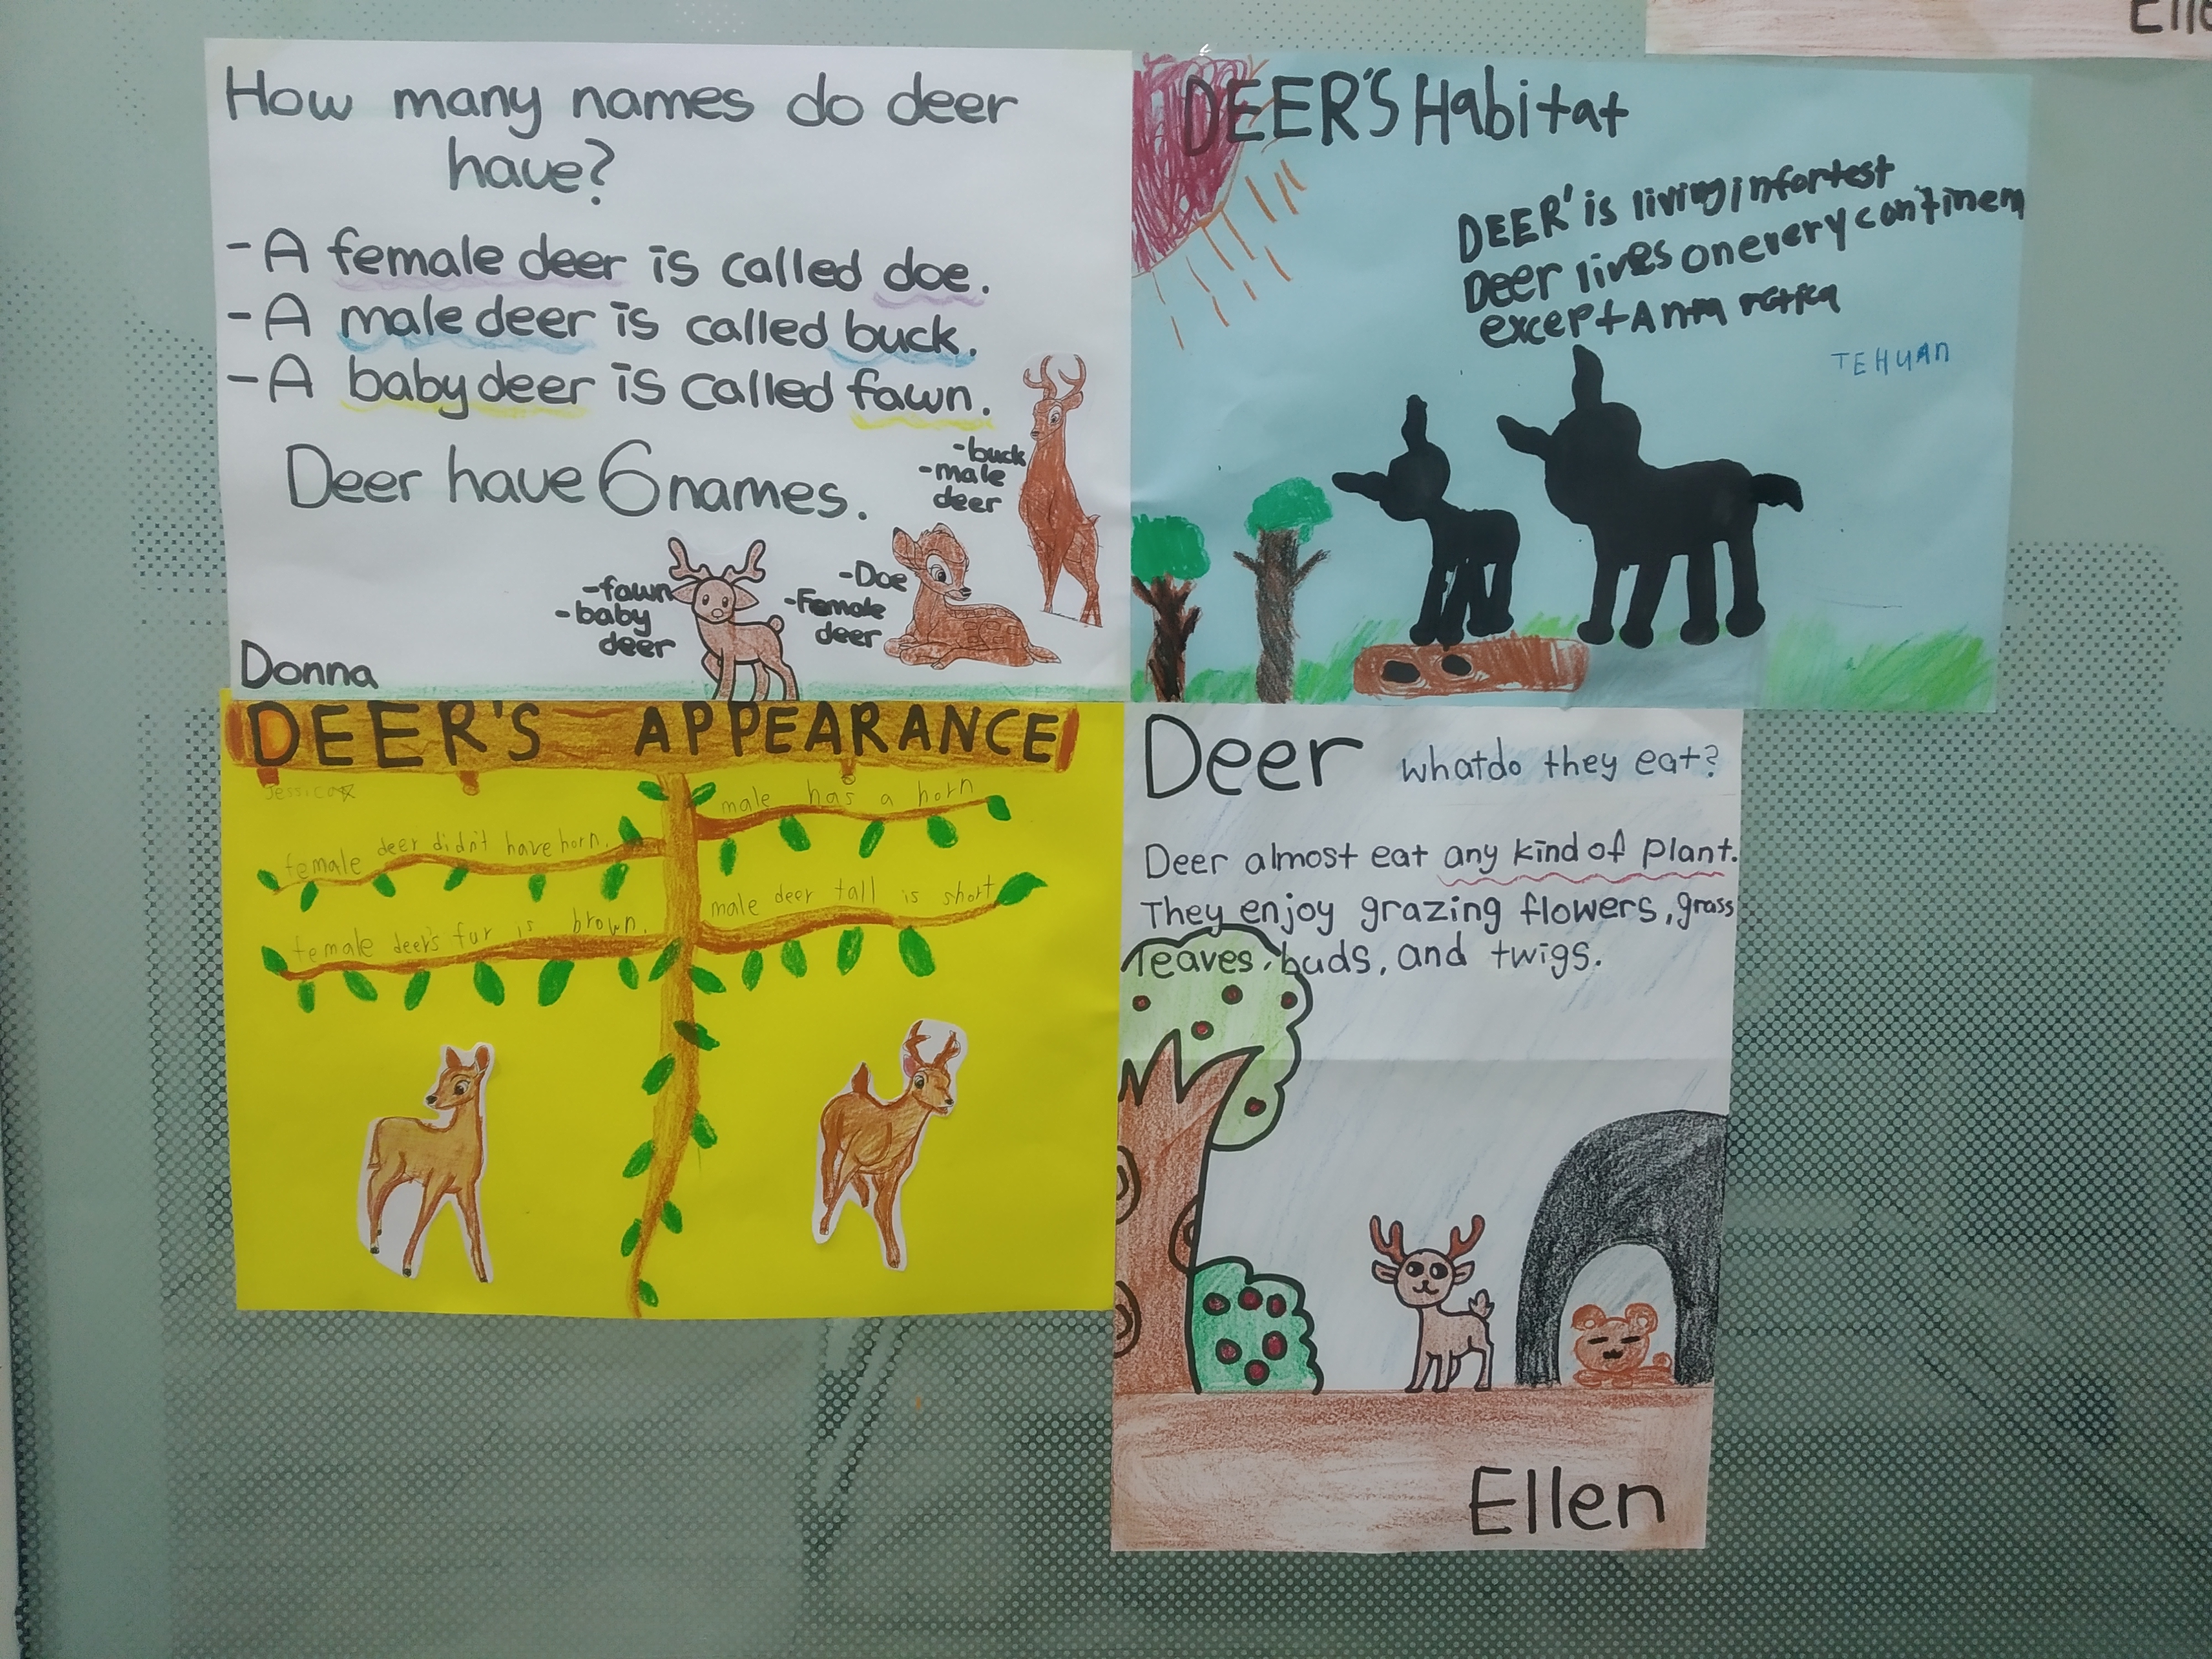 How many names do deer
have?
-A female deer is called doe.
-A male deer is called buck.
-A baby deer is called fawn.
Deer have 6 names.
-buck
-male
deer
-Doe
-Female
deer
-fawn
-baby
deer
Donna
DEER'S Habitat
DEER' is living in fortest
Deer lives on every continem
except Antarctica
TEHUAN
DEER'S APPEARANCE
Jessica
female deer didn't have horn.
female deer's fur is brown.
male has a horn
male deer tall is short
Deer what do they eat?
Deer almost eat any kind of plant.
They enjoy grazing flowers, grass
leaves, buds, and twigs.
Ellen